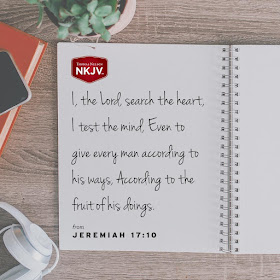 THOMAS NELSON
NKJV.
I, the Lord, search the heart,
I test the mind, Even to
give every man according to
his ways, According to the
fruit of his doings.
from
JEREMIAH 17:10